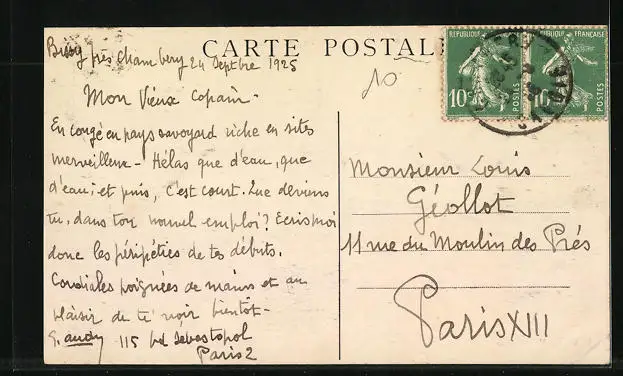 CARTE POSTALE
près Chambery 24 Septbre 1925
10
Mon Vieux Copain -
En congé en pays savoyard riche en sites
merveilleux - Hélas que d'eau, que
d'eau; et puis, c'est court. Que deviens
tu, dans ton nouvel emploi? Ecris moi
donc les péripéties de tes débuts.
Cordiales poignées de mains et au
plaisir de te voir bientôt -
115 bd Sébastopol
Paris 2
REPUBLIQUE
10c
POSTES
FRANÇAISE
10
POSTES
Monsieur Louis
Géollot
11 rue du Moulin des Prés
Paris XIII